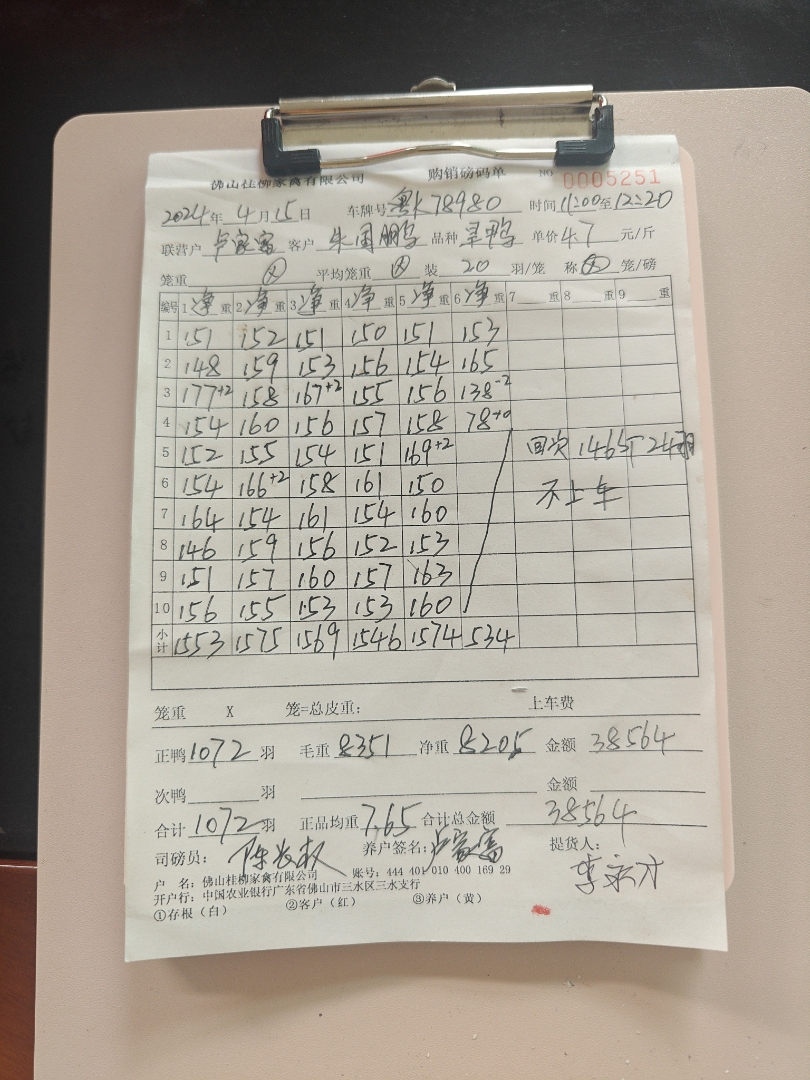 佛山桂柳家禽有限公司 购销磅码单 NO 0005251
2024年 4月 15日 车牌号 粤K78980 时间 11:00至12:20
联营户 卢家富 客户 朱国鹏 品种 鸭 单价 4.7 元/斤
笼重 平均笼重 装 20 羽/笼 称 笼/磅
编号 1 净 重 2 净 重 3 净 重 4 净 重 5 净 重 6 净 重 7 重 8 重 9 重
1 151 152 151 150 151 153
2 148 159 153 156 154 165
3 177+2 158 167+2 155 156 138-2
4 154 160 156 157 158 78+0
5 152 155 154 151 169+2 回次 146斤 24羽
6 154 166+2 158 161 150 不上车
7 164 154 161 154 160
8 146 159 156 152 153
9 151 157 160 157 163
10 156 155 153 153 160
小计 1553 1575 1569 1546 1574 534
笼重 X 笼=总皮重: 上车费
正鸭 1072 羽 毛重 8351 净重 8205 金额 38564
次鸭 羽 金额
合计 1072 羽 正品均重 7.65 合计总金额 38564
司磅员: 养户签名: 卢家富 提货人:
户 名: 佛山桂柳家禽有限公司 账号: 444 401 010 400 169 29
开户行: 中国农业银行广东省佛山市三水区三水支行
①存根（白） ②客户（红） ③养户（黄）